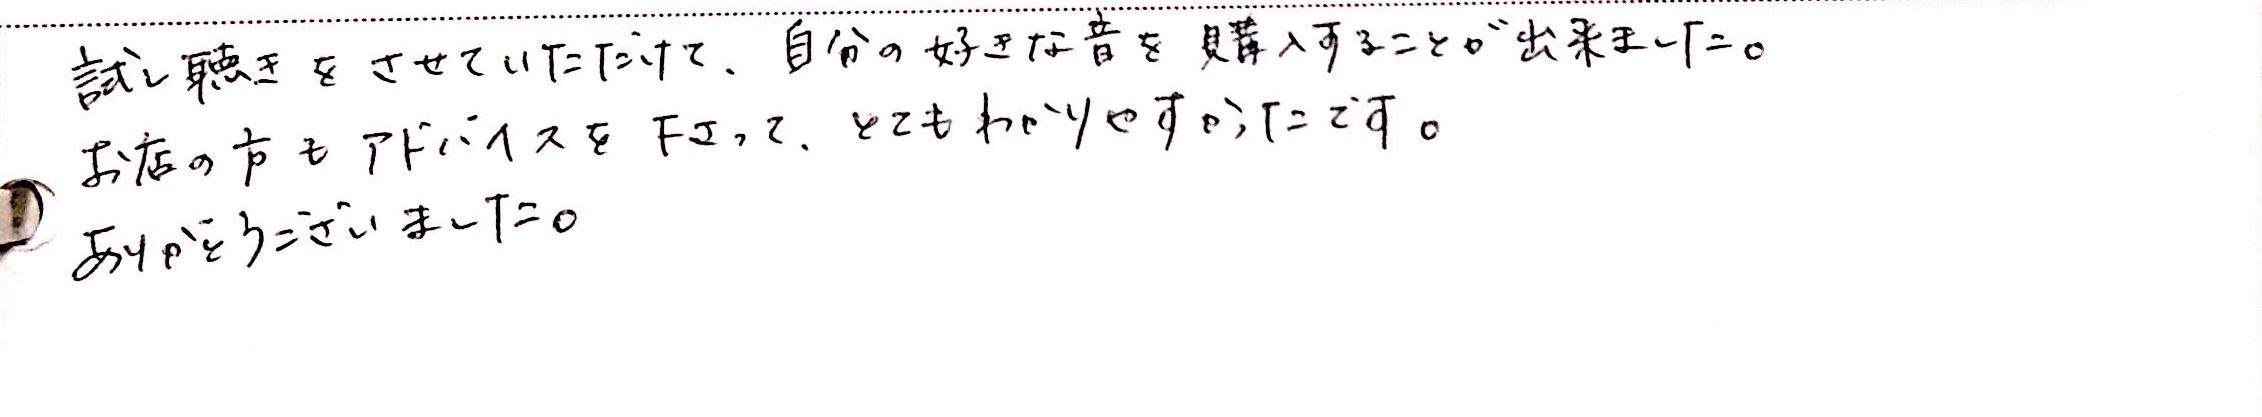 試し聴きをさせていただけて、自分の好きな音を購入することが出来ました。
お店の方もアドバイスを下さって、とてもわかりやすかったです。
ありがとうございました。